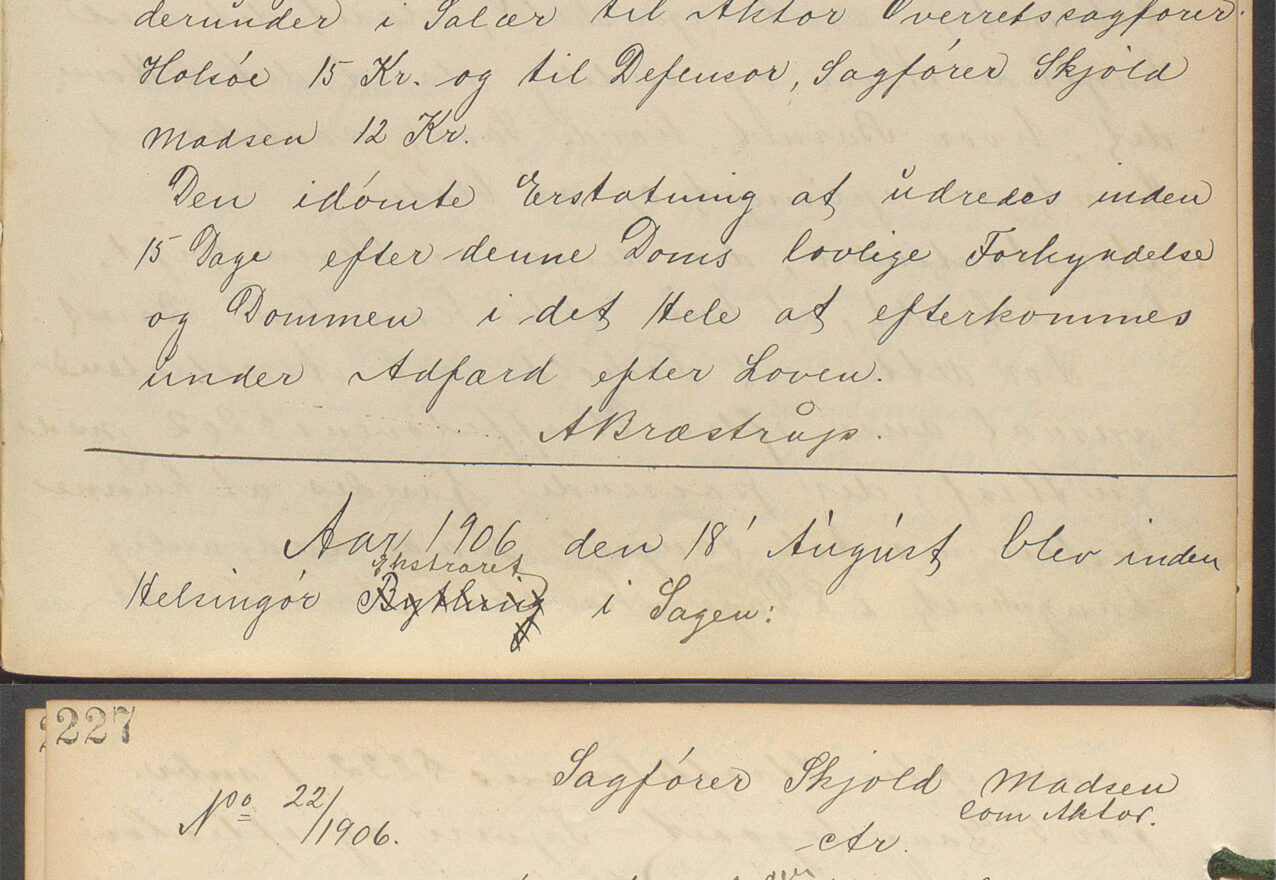 derunder i Salær til Aktor Overretssagfører
Holsöe 15 Kr. og til Defensor, Sagfører Skjöld
Madsen 12 Kr.
Den idömte Erstatning at udredes inden
15 Dage efter denne Doms lovlige Forkyndelse
og Dommen i det Hele at efterkommes
under Adfærd efter Loven.
A Bræstrup.
Aar 1906 den 18' August blev inden
Ekstraret
Helsingør Bythring i Sagen:
227
Sagfører Skjold Madsen
som Aktor.
No 22/1906.
ctr.